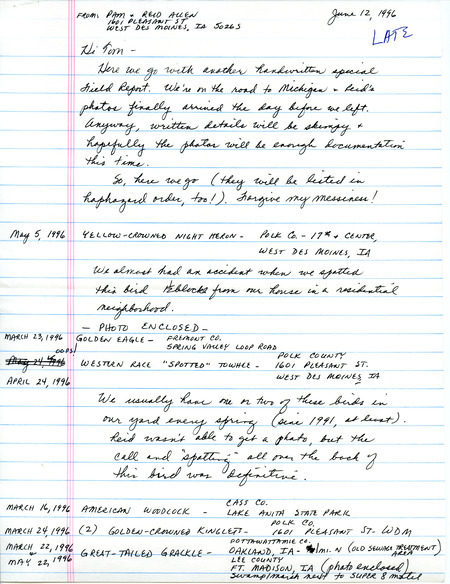 FROM: PAM & REID ALLEN
1601 PLEASANT ST
WEST DES MOINES, IA 50265
June 12, 1996
LATE
Hi Tom -
Here we go with another handwritten special
Field Report. We're on the road to Michigan & Reid's
photos finally arrived the day before we left.
Anyway, written details will be skimpy &
hopefully the photos will be enough documentation
this time.
So, here we go (they will be listed in
haphazard order, too!). Forgive my messiness!
May 5, 1996 YELLOW-CROWNED NIGHT HERON - POLK CO - 17th & CENTER,
WEST DES MOINES, IA
We almost had an accident when we spotted
this bird blocks from our house in a residential
neighborhood.
- PHOTO ENCLOSED -
MARCH 23, 1996 GOLDEN EAGLE - FREMONT CO.
SPRING VALLEY LOOP ROAD
OOPS!
APRIL 24, 1996 WESTERN RACE "SPOTTED" TOWHEE - POLK COUNTY
1601 PLEASANT ST.
WEST DES MOINES, IA
We usually have one or two of these birds in
our yard every spring (since 1991, at least).
Reid wasn't able to get a photo, but the
call and "spotting" all over the back of
this bird was definitive.
MARCH 16, 1996 AMERICAN WOODCOCK - CASS CO.
LAKE ANITA STATE PARK
MARCH 24, 1996 (2) GOLDEN-CROWNED KINGLETS - POLK CO.
1601 PLEASANT ST - WDM
MARCH 22, 1996 GREAT-TAILED GRACKLE - POTTAWATTAMIE CO.
OAKLAND, IA - 1 mi. N (OLD SEWAGE TREATMENT AREA)
MAY 22, 1996 LEE COUNTY
FT. MADISON, IA (photo enclosed)
swamp/marsh next to SUPER 8 motel